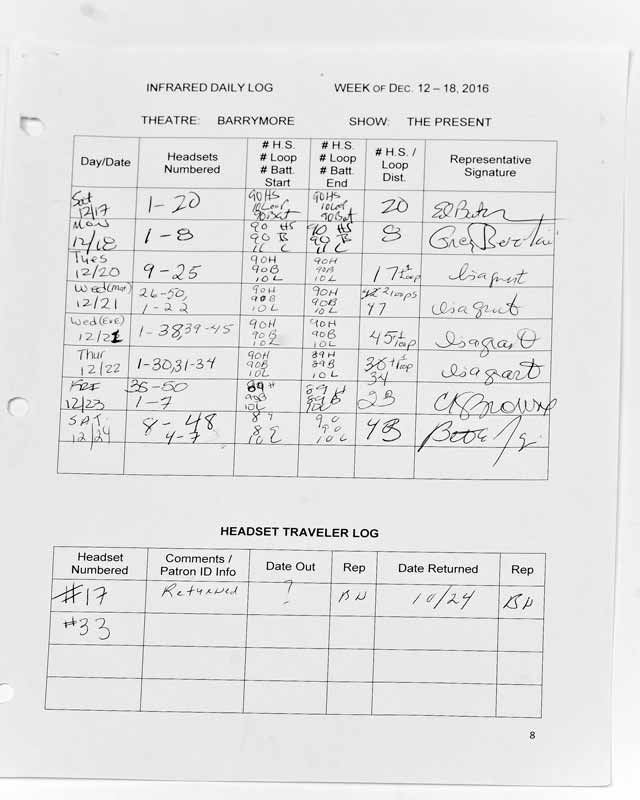 INFRARED DAILY LOG WEEK OF DEC. 12 – 18, 2016
THEATRE: BARRYMORE SHOW: THE PRESENT
Day/Date Headsets Numbered # H.S. # Loop # Batt. Start # H.S. # Loop # Batt. End # H.S. / Loop Dist. Representative Signature
Sat 12/17 1-20 90HS 10Loop 90Bat 90HS 10Loop 90Bat 20
Mon 12/18 1-8 90 HS 90 B 90 HS 90 B 8
Tues 12/20 9-25 90H 90B 10L 90H 90B 10L 17 + 1 loop
Wed (Mat) 12/21 26-50, 1-22 90H 90B 10L 90H 90B 10L 2 loops 47
Wed (Eve) 12/21 1-38, 39-45 90H 90B 10L 90H 90B 10L 45 + 1 loop
Thur 12/22 1-30, 31-34 90H 90B 10L 89H 89B 10L + 1 loop 34
FRI 12/23 35-50 1-7 89H 10L 89H 89B 10L 23
SAT. 12/24 8-48 4-7 89 89 10L 90 90 10L 43
HEADSET TRAVELER LOG
Headset Numbered Comments / Patron ID Info Date Out Rep Date Returned Rep
#17 Returned ? BN 10/24 BN
#33
8